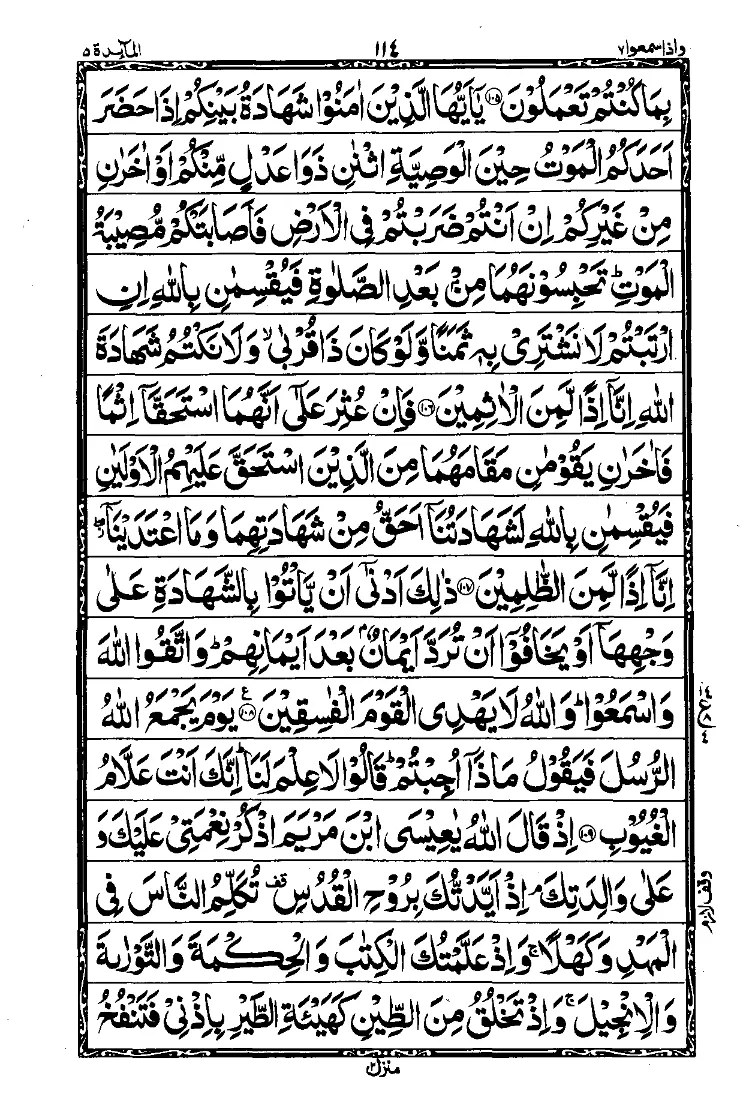 واذاسمعوا٧ ١١٤ المآئدة ٥
بِمَا كُنْتُمْ تَعْمَلُوْنَ ١٠٥ يٰۤاَيُّهَا الَّذِيْنَ اٰمَنُوْا شَهَادَةُ بَيْنِكُمْ اِذَا حَضَرَ
اَحَدَكُمُ الْمَوْتُ حِيْنَ الْوَصِيَّةِ اثْنٰنِ ذَوَا عَدْلٍ مِّنْكُمْ اَوْ اٰخَرٰنِ
مِنْ غَيْرِكُمْ اِنْ اَنْتُمْ ضَرَبْتُمْ فِى الْاَرْضِ فَاَصَابَتْكُمْ مُّصِيْبَةُ
الْمَوْتِ ؕ تَحْبِسُوْنَهُمَا مِنْۢ بَعْدِ الصَّلٰوةِ فَيُقْسِمٰنِ بِاللّٰهِ اِنِ
ارْتَبْتُمْ لَا نَشْتَرِىْ بِهٖ ثَمَنًا وَّلَوْ كَانَ ذَا قُرْبٰى ۙ وَلَا نَكْتُمُ شَهَادَةَ
اللّٰهِ اِنَّاۤ اِذًا لَّمِنَ الْاٰثِمِيْنَ ١٠٦ فَاِنْ عُثِرَ عَلٰۤى اَنَّهُمَا اسْتَحَقَّاۤ اِثْمًا
فَاٰخَرٰنِ يَقُوْمٰنِ مَقَامَهُمَا مِنَ الَّذِيْنَ اسْتَحَقَّ عَلَيْهِمُ الْاَوْلَيٰنِ
فَيُقْسِمٰنِ بِاللّٰهِ لَشَهَادَتُنَاۤ اَحَقُّ مِنْ شَهَادَتِهِمَا وَمَا اعْتَدَيْنَاۤ ۖ
اِنَّاۤ اِذًا لَّمِنَ الظّٰلِمِيْنَ ١٠٧ ذٰلِكَ اَدْنٰۤى اَنْ يَّاْتُوْا بِالشَّهَادَةِ عَلٰى
وَجْهِهَاۤ اَوْ يَخَافُوْۤا اَنْ تُرَدَّ اَيْمَانٌۢ بَعْدَ اَيْمَانِهِمْ ؕ وَاتَّقُوا اللّٰهَ
وَاسْمَعُوْا ؕ وَاللّٰهُ لَا يَهْدِى الْقَوْمَ الْفٰسِقِيْنَ ١٠٨ ع يَوْمَ يَجْمَعُ اللّٰهُ
الرُّسُلَ فَيَقُوْلُ مَاذَاۤ اُجِبْتُمْ ؕ قَالُوْا لَا عِلْمَ لَنَا ؕ اِنَّكَ اَنْتَ عَلَّامُ
الْغُيُوْبِ ١٠٩ اِذْ قَالَ اللّٰهُ يٰعِيْسَى ابْنَ مَرْيَمَ اذْكُرْ نِعْمَتِىْ عَلَيْكَ وَ
عَلٰى وَالِدَتِكَ ۘ اِذْ اَيَّدْتُّكَ بِرُوْحِ الْقُدُسِ قف تُكَلِّمُ النَّاسَ فِى
الْمَهْدِ وَكَهْلًا ۚ وَاِذْ عَلَّمْتُكَ الْكِتٰبَ وَالْحِكْمَةَ وَالتَّوْرٰىةَ
وَالْاِنْجِيْلَ ۚ وَاِذْ تَخْلُقُ مِنَ الطِّيْنِ كَهَيْئَةِ الطَّيْرِ بِاِذْنِىْ فَتَنْفُخُ
ع
وقف لازم
منزل